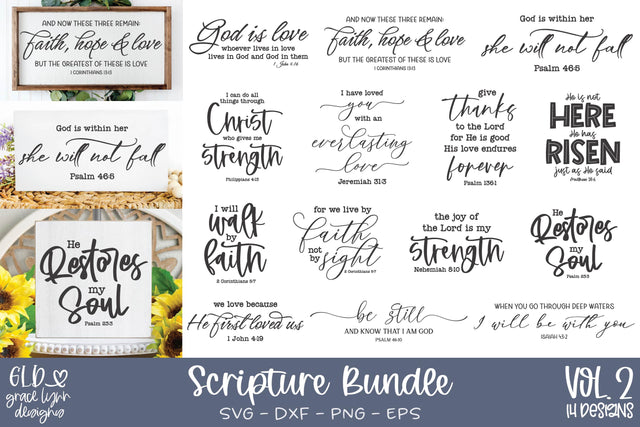 AND NOW THESE THREE REMAIN:
faith, hope & love
BUT THE GREATEST OF THESE IS LOVE
1 CORINTHIANS 13:13
God is within her
she will not fall
Psalm 46:5
He
Restores
my
Soul
Psalm 23:3
God is love
whoever lives in love
lives in God and God in them
1 John 4:16
AND NOW THESE THREE REMAIN:
faith, hope & love
BUT THE GREATEST OF THESE IS LOVE
1 CORINTHIANS 13:13
God is within her
she will not fall
Psalm 46:5
I can do all
things through
Christ
who gives me
strength
Philippians 4:13
I have loved
you
with an
everlasting
love
Jeremiah 31:3
give
thanks
to the Lord
for He is good
His love endures
forever
Psalm 136:1
He is not
HERE
He has
RISEN
just as He said
Matthew 28:6
I will
walk
by
faith
2 Corinthians 5:7
for we live by
faith
not
by
sight
2 Corinthians 5:7
the joy of
the Lord is my
strength
Nehemiah 8:10
He
Restores
my
Soul
Psalm 23:3
we love because
He first loved us
1 John 4:19
be still
AND KNOW THAT I AM GOD
PSALM 46:10
WHEN YOU GO THROUGH DEEP WATERS
I will be with you
ISAIAH 43:2
GLD
grace lynn
designs
Scripture Bundle
SVG - DXF - PNG - EPS
VOL. 2
14 DESIGNS